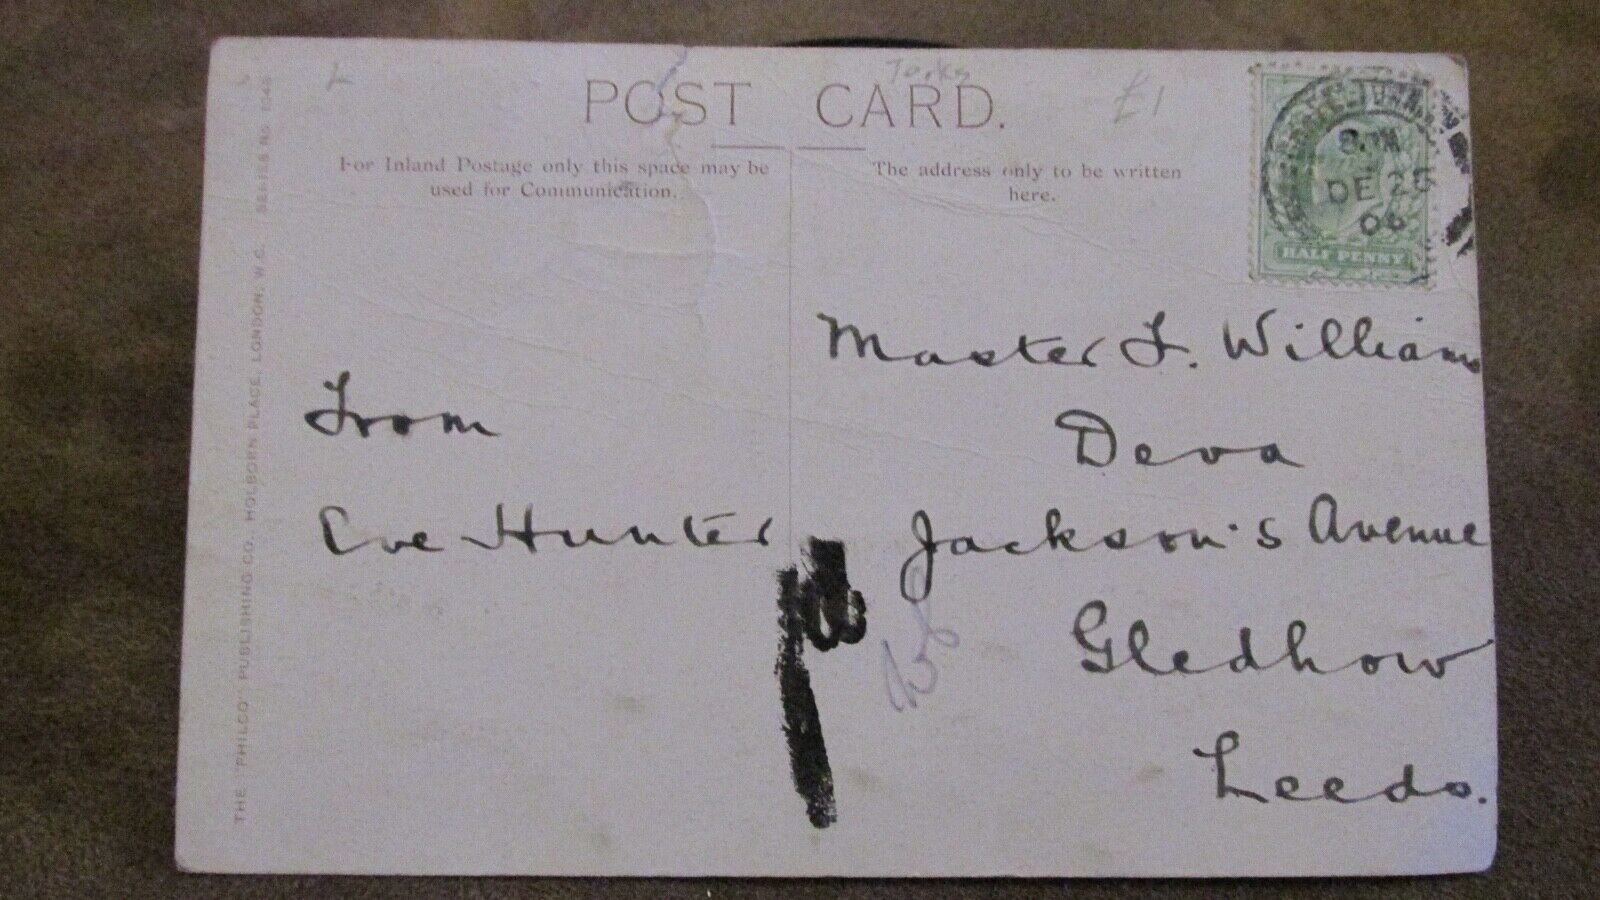 POST CARD.
Yorks
£1
For Inland Postage only this space may be
used for Communication.
The address only to be written
here.
DE 25
06
HALF PENNY
From
Eve Hunter
Master F. Williams
Deva
Jackson's Avenue
Gledhow
Leeds.
THE "PHILCO" PUBLISHING CO., HOLBORN PLACE, LONDON, W.C. SERIES No.